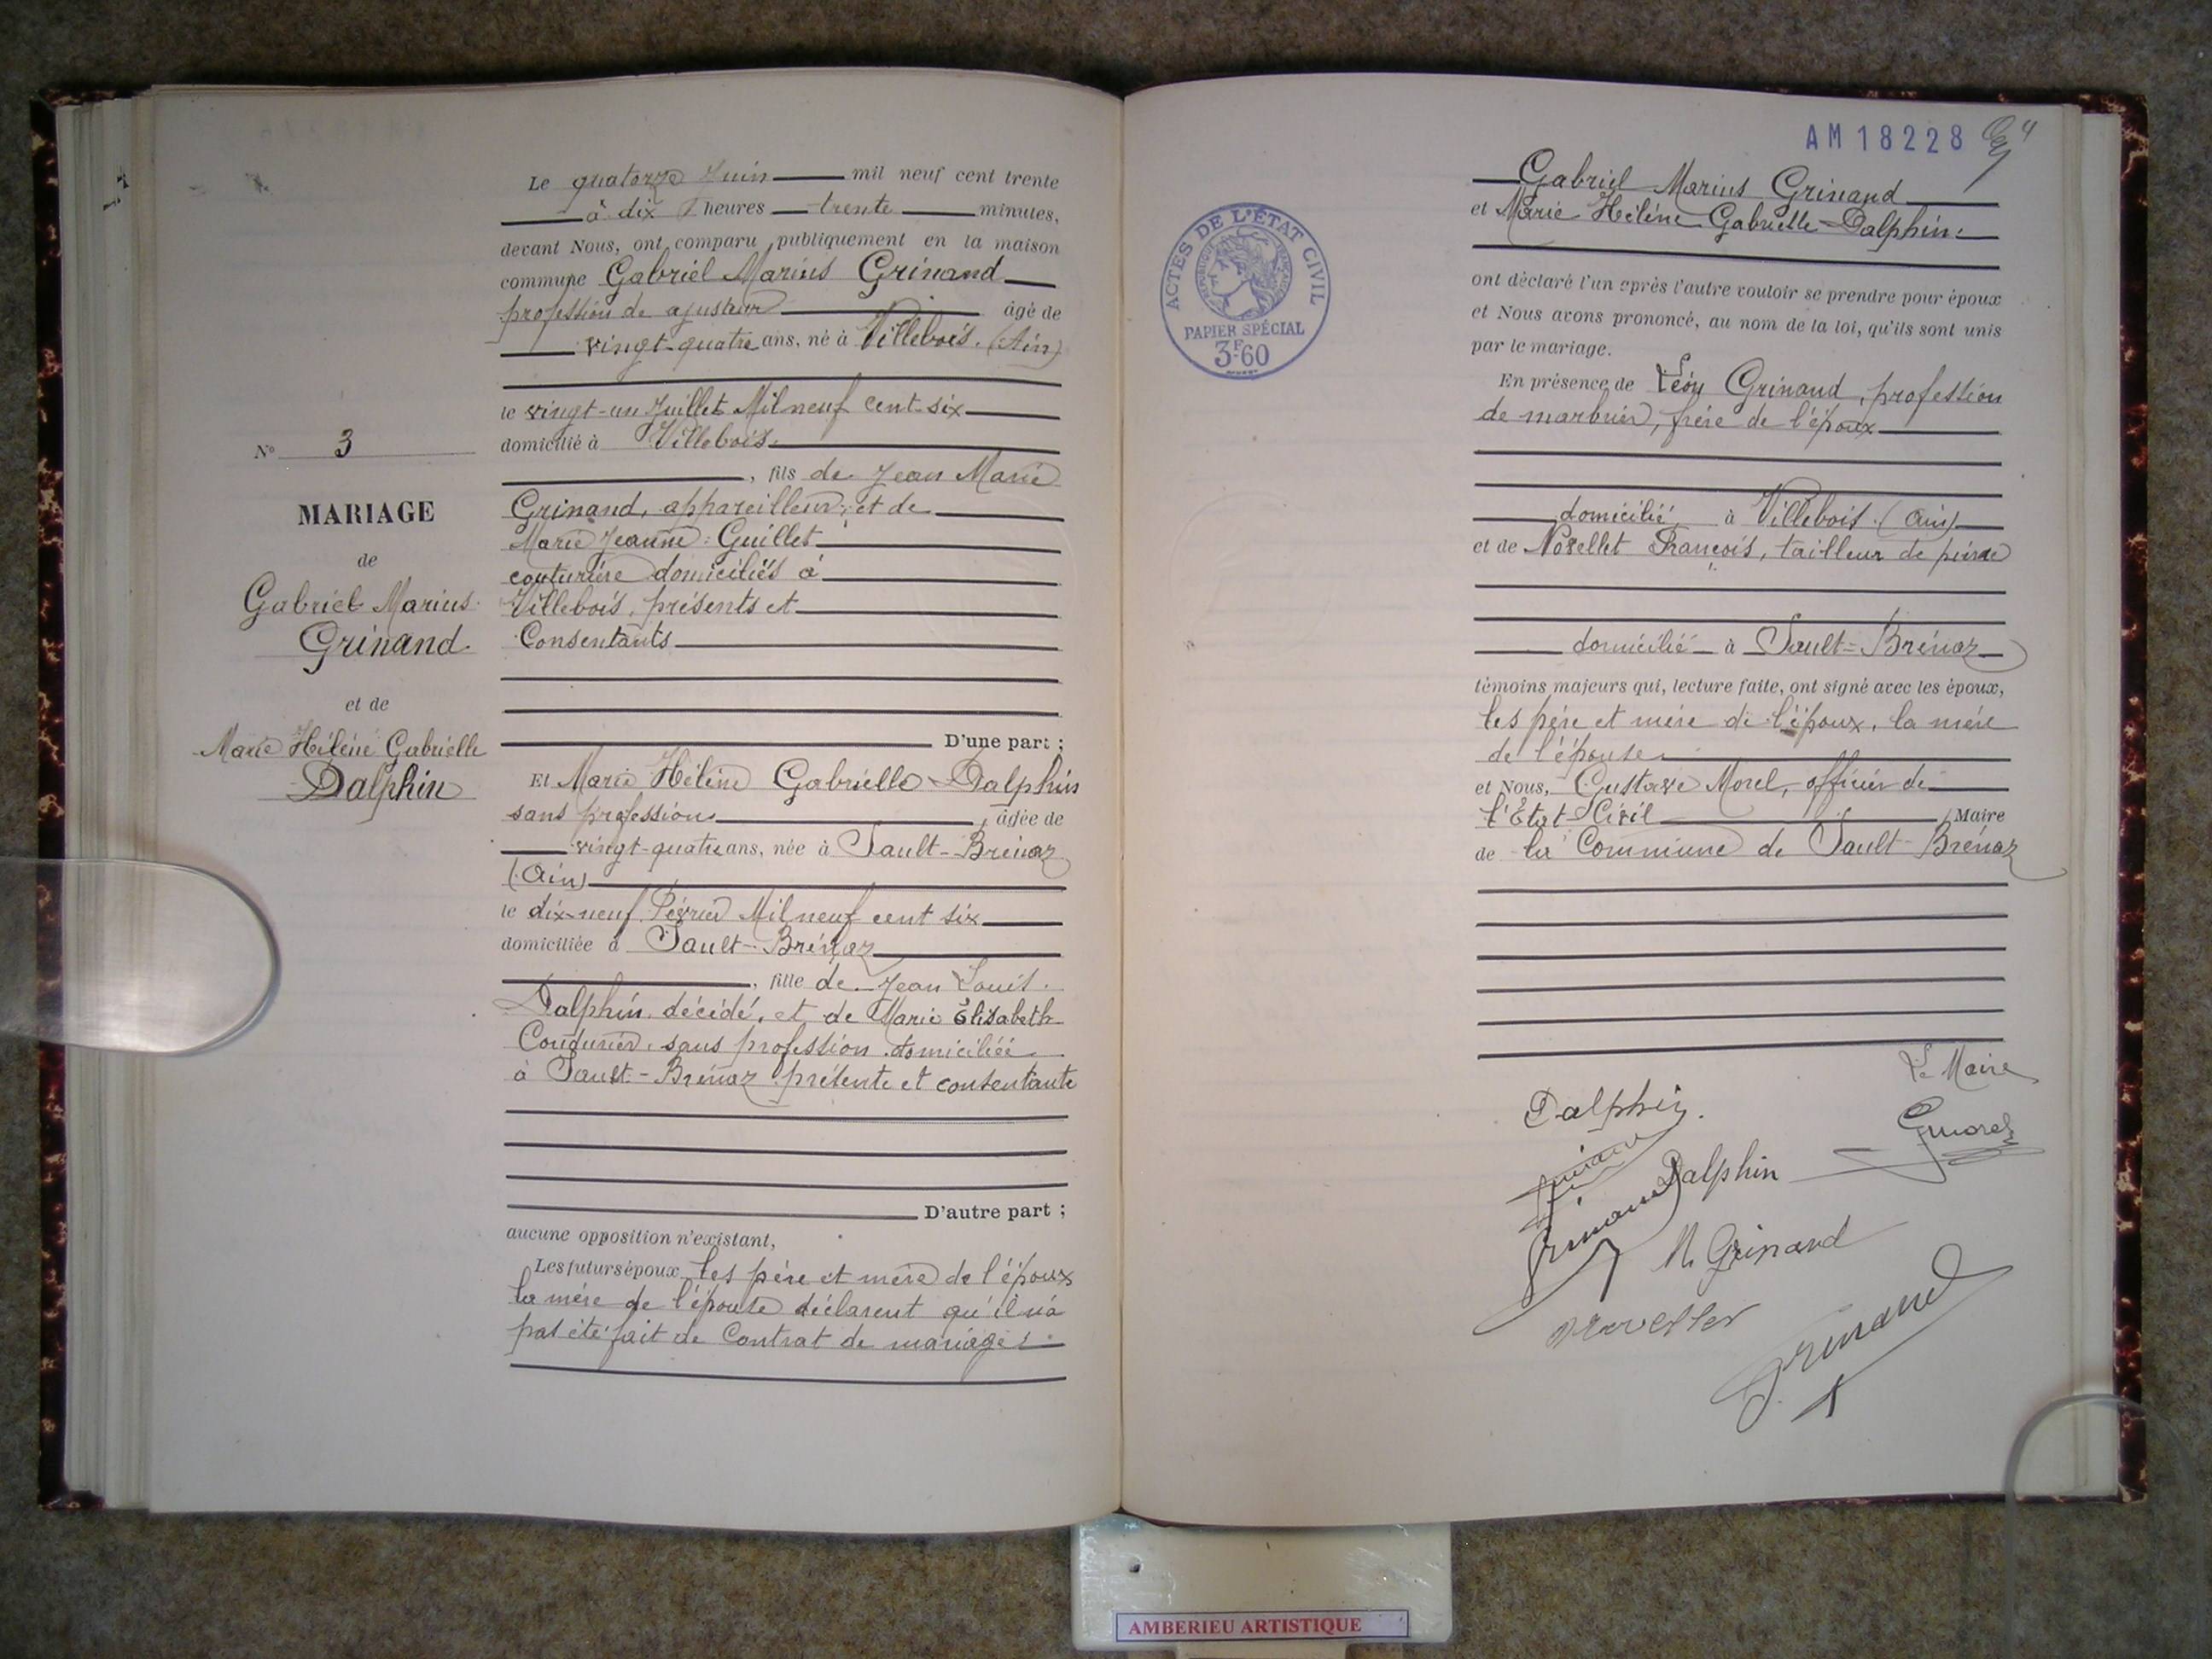 Le quatorze Juin mil neuf cent trente
à dix heures trente minutes,
devant Nous, ont comparu publiquement en la maison
commune Gabriel Marius Grinand
profession de ajusteur âgé de
vingt-quatre ans, né à Villebois. (Ain)
le vingt-un Juillet Mil neuf cent six
domicilié à Villebois.
, fils de Jean Marie
Grinand, appareilleur, et de
Marie Jeanne Guillet
couturière domiciliés à
Villebois, présents et
Consentants
D'une part ;
Et Marie Hélène Gabrielle Dalphin
sans profession, âgée de
vingt-quatre ans, née à Sault-Brénaz
(Ain)
le dix-neuf Février Mil neuf cent six
domiciliée à Sault-Brénaz
, fille de Jean Louis
Dalphin décédé, et de Marie Élisabeth
Coudurier, sans profession domiciliée
à Sault-Brénaz présente et consentante
D'autre part ;
aucune opposition n'existant,
Les futurs époux, les père et mère de l'époux
la mère de l'épouse déclarent qu'il n'a
pas été fait de Contrat de mariage.
N° 3
MARIAGE
de
Gabriel Marius
Grinand.
et de
Marie Hélène Gabrielle
Dalphin
AM 18228
Gabriel Marius Grinand
et Marie Hélène Gabrielle Dalphin
ont déclaré l'un après l'autre vouloir se prendre pour époux
et Nous avons prononcé, au nom de la loi, qu'ils sont unis
par le mariage.
En présence de Léon Grinand, profession
de marbrier, frère de l'époux
domicilié à Villebois. (Ain)
et de Novellet François, tailleur de pierre
domicilié à Sault-Brénaz
témoins majeurs qui, lecture faite, ont signé avec les époux,
les père et mère de l'époux, la mère
de l'épouse
et Nous, Gustave Morel, officier de
l'État-Civil Maire
de la Commune de Sault-Brénaz
Le Maire
Dalphin.
GMorel
Grinand
Dalphin
M. Grinand
Grinand
ACTES DE L'ÉTAT CIVIL
RÉPUBLIQUE FRANÇAISE
PAPIER SPÉCIAL
3F.60
AMBERIEU ARTISTIQUE